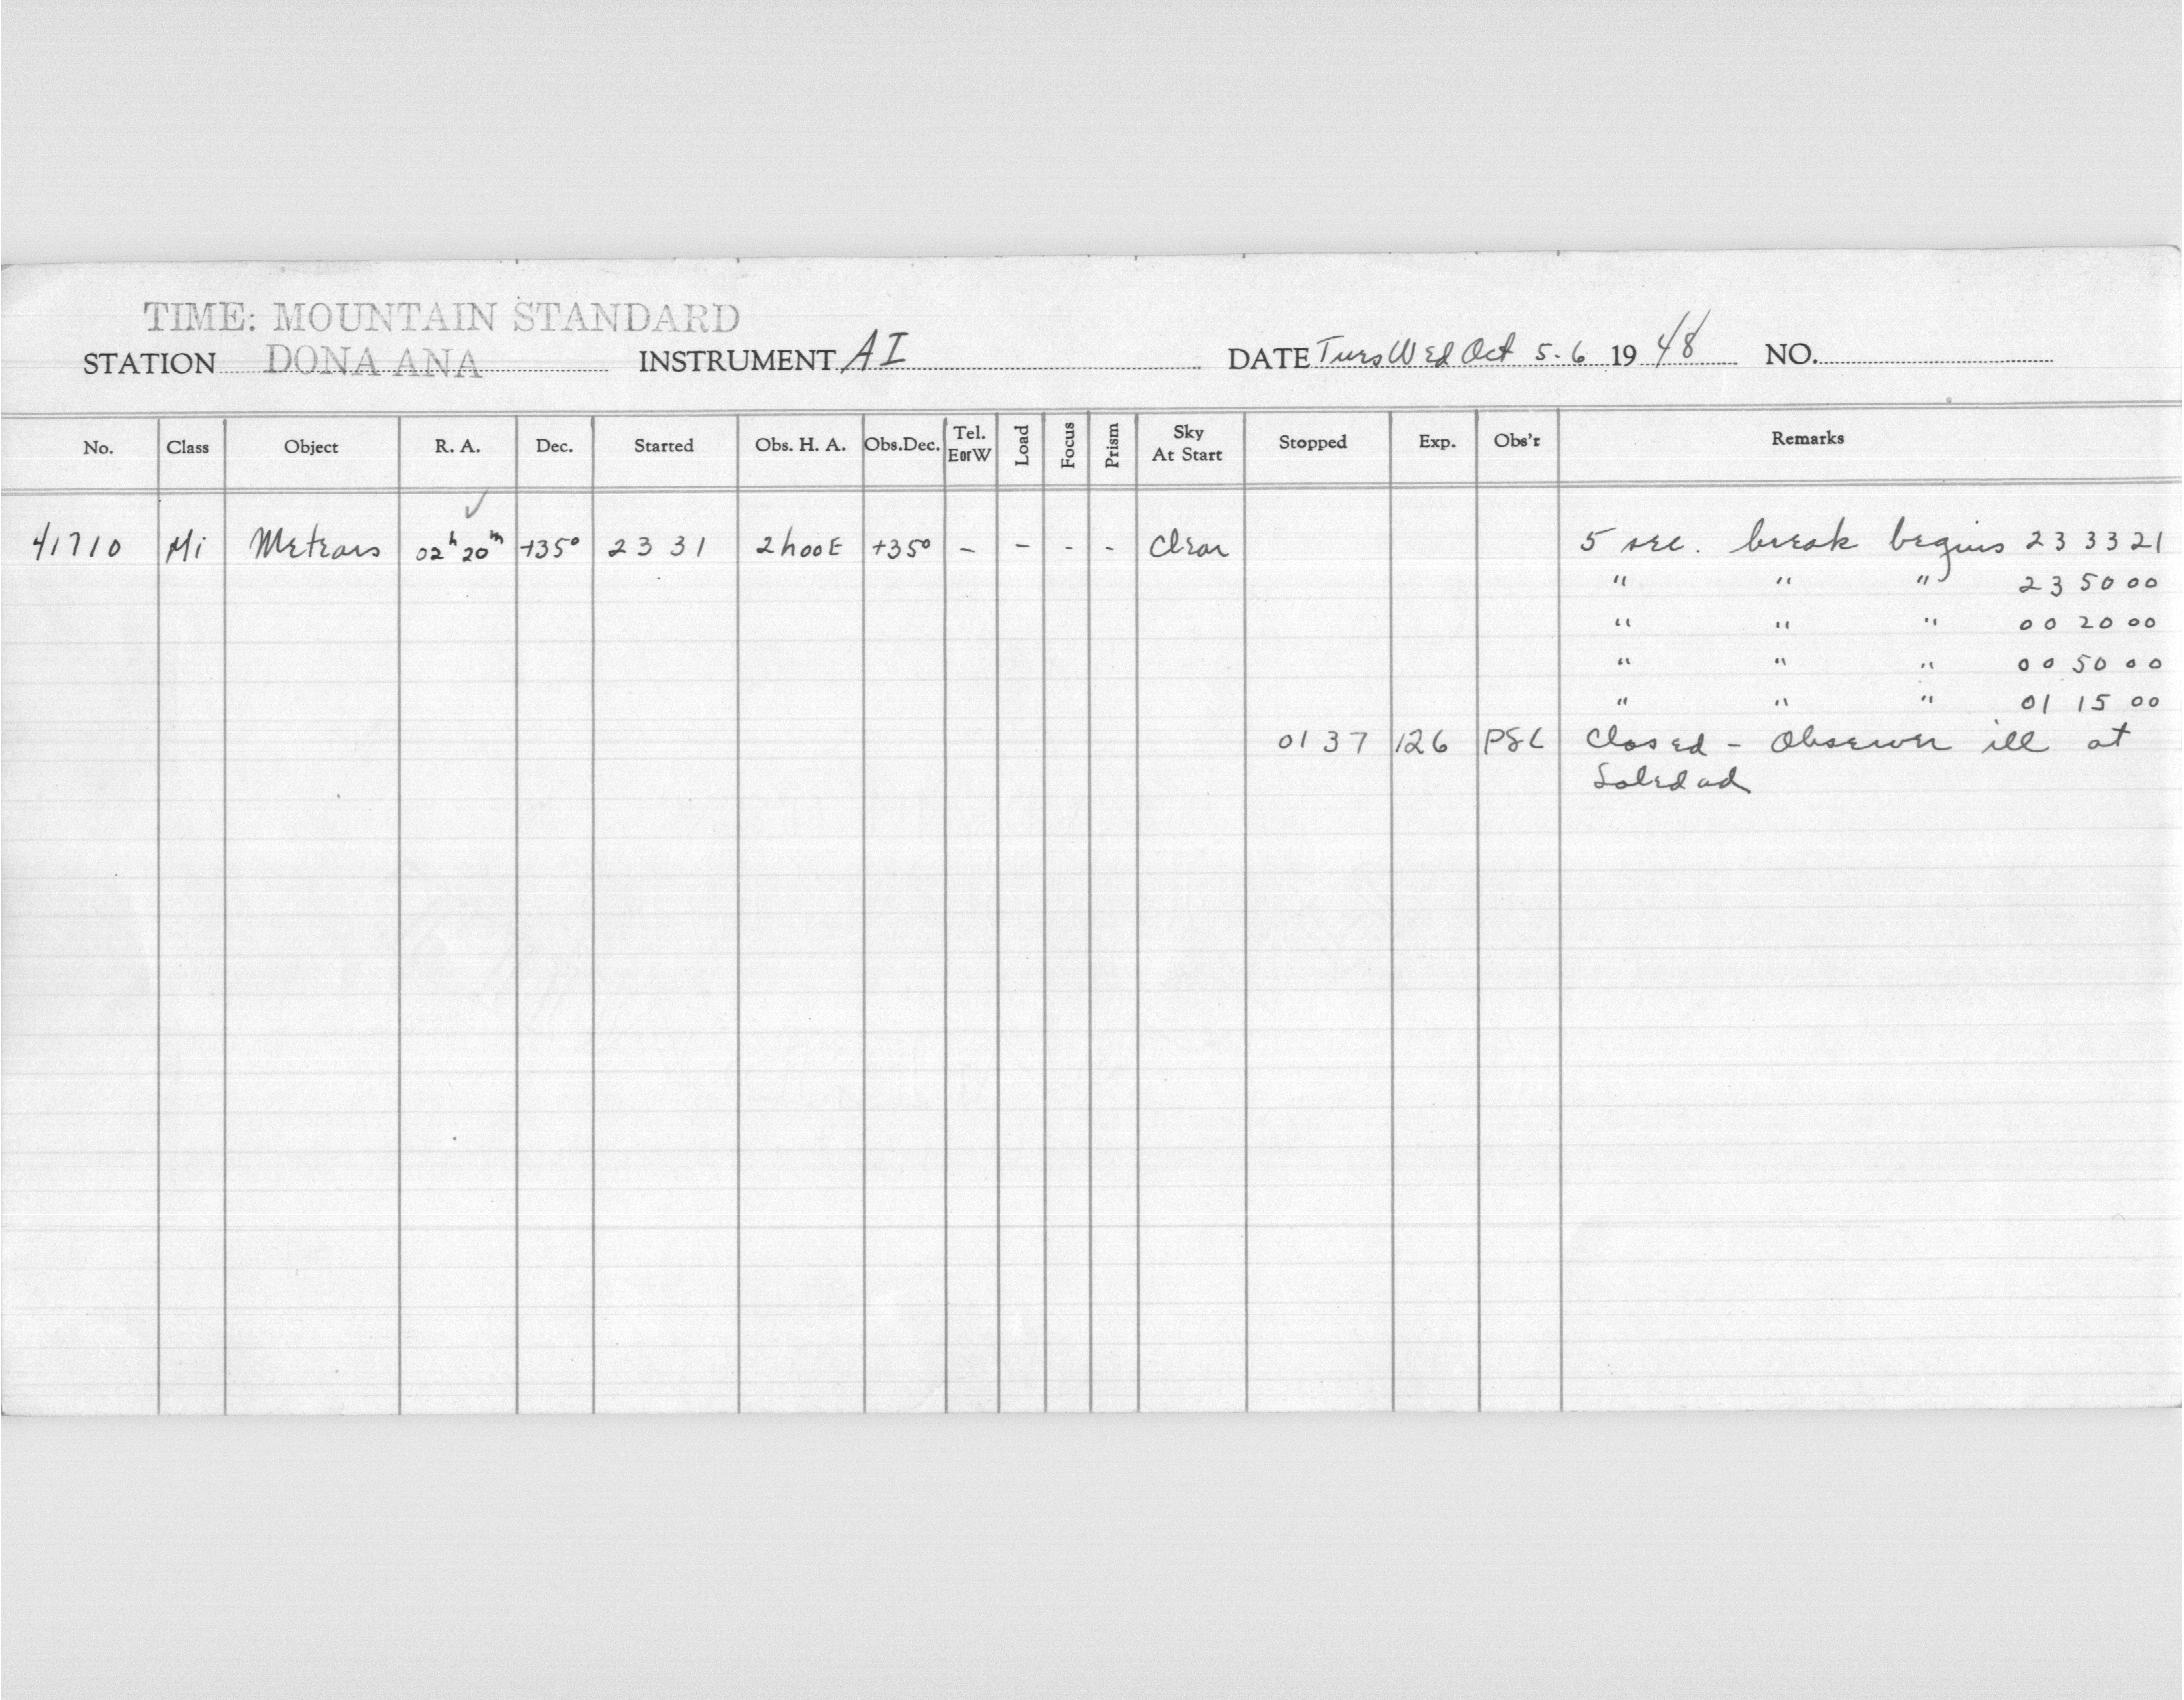 TIME: MOUNTAIN STANDARD
STATION DONA ANA INSTRUMENT AI DATE Tues Wed Oct 5-6 1948 NO.
No. Class Object R. A. Dec. Started Obs. H. A. Obs.Dec. Tel. EorW Load Focus Prism Sky At Start Stopped Exp. Obs'r Remarks
✓
41710 Mi Meteors 02h 20m +35° 23 31 2h00E +35° - - - - Clear 5 sec. break begins 23 33 21
" " " 23 50 00
" " " 00 20 00
" " " 00 50 00
" " " 01 15 00
01 37 126 PSC Closed - Observer ill at
Soledad